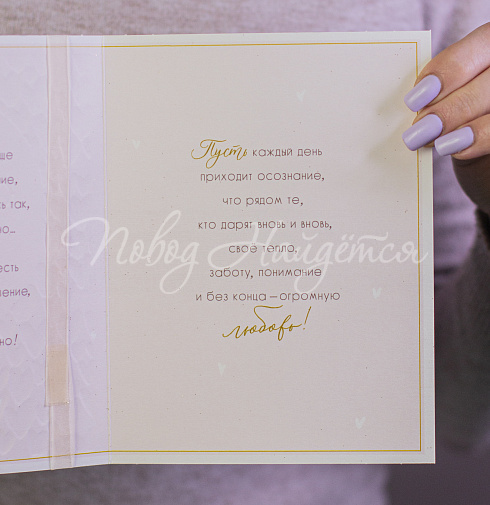 ше
ие,
ь так,
о...
есть
ление,
но!
Пусть каждый день
приходит осознание,
что рядом те,
кто дарят вновь и вновь,
своё тепло,
заботу, понимание
и без конца – огромную
любовь!
Повод Найдётся